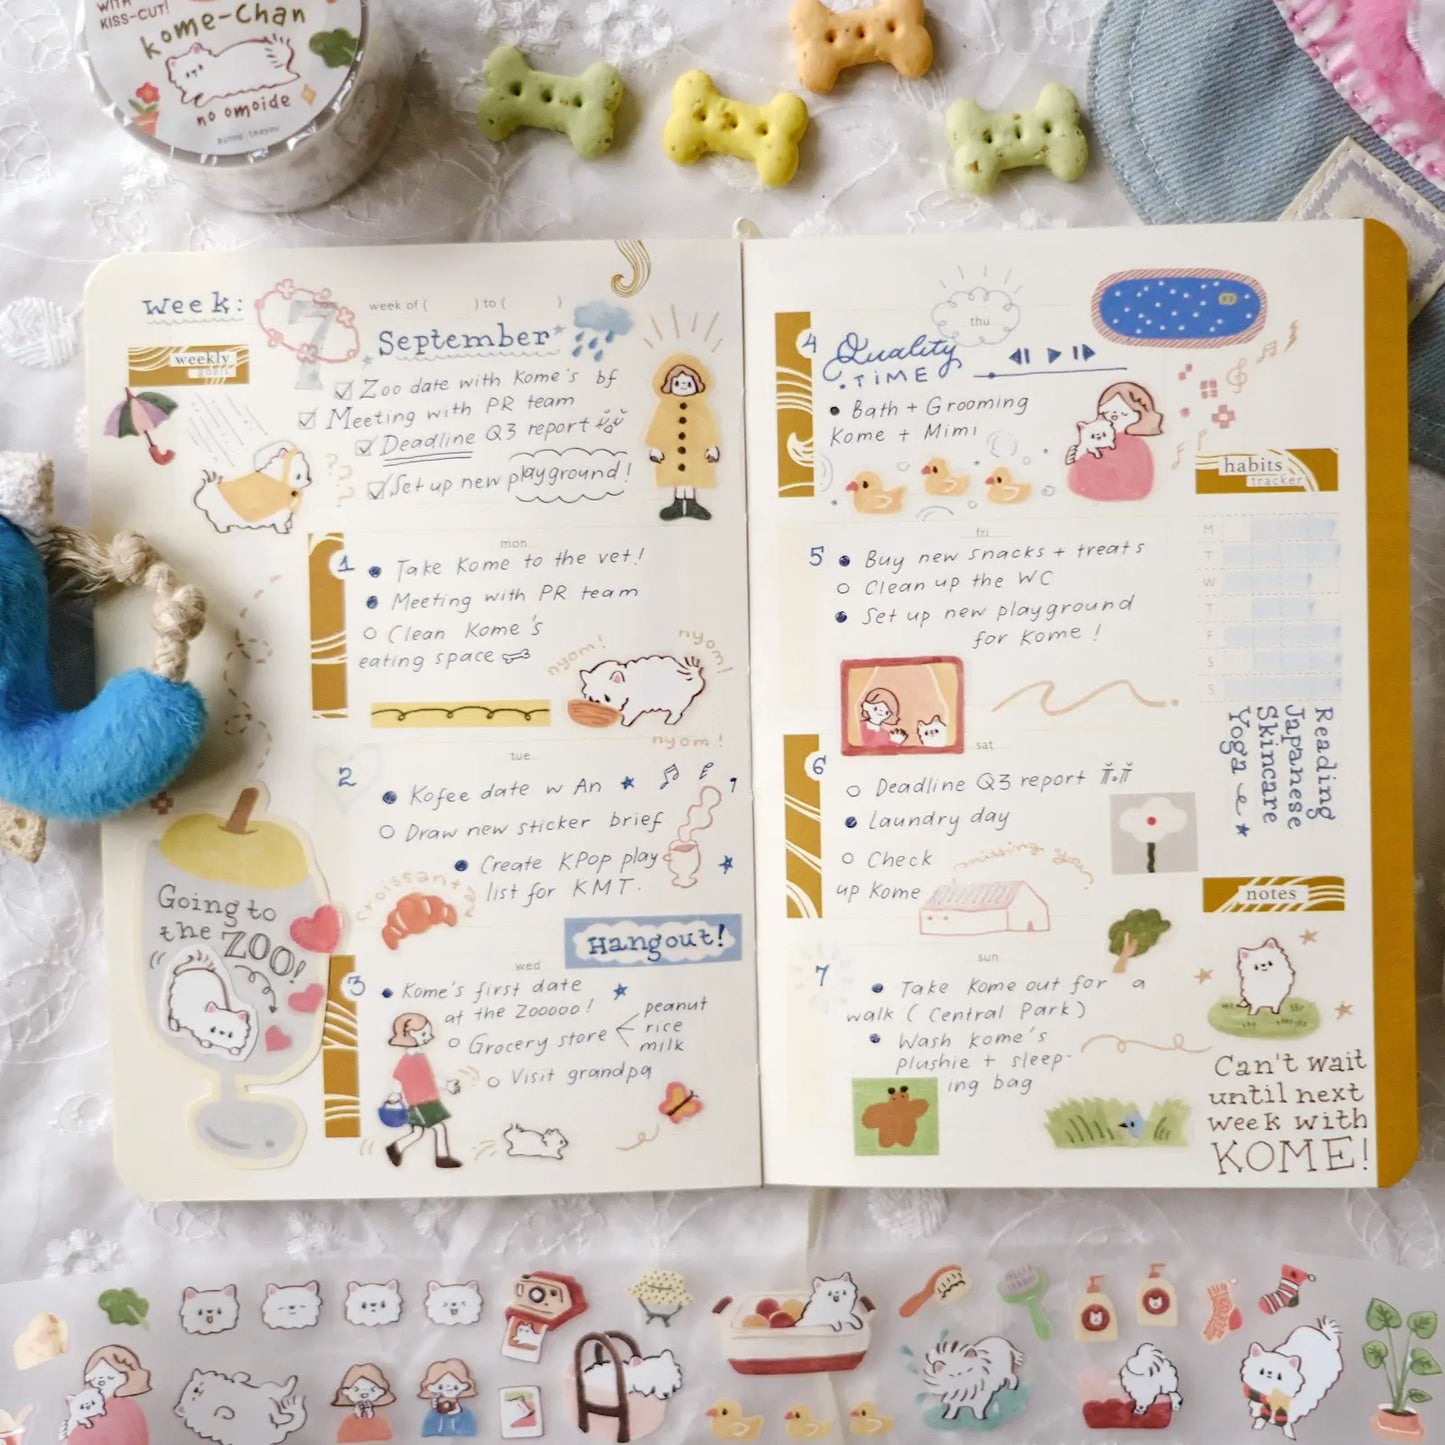 WITH
KISS-CUT!
kome-chan
no omoide
week:
7
week of ( ) to ( )
September
weekly
goals
Zoo date with Kome's bf
Meeting with PR team
Deadline Q3 report
Set up new playground!
???
mon
1
Take Kome to the vet!
Meeting with PR team
Clean Kome's
eating space
nyom!
nyom!
nyom!
tue
2
Kofee date w An
Draw new sticker brief
Create KPop play
list for KMT.
croissant
Hangout!
Going to
the ZOO!
wed
3
Kome's first date
at the Zooooo!
Grocery store
peanut
rice
milk
Visit grandpa
thu
4
Quality
TIME
Bath + Grooming
Kome + Mimi
fri
5
Buy new snacks + treats
Clean up the WC
Set up new playground
for Kome!
sat
6
Deadline Q3 report
Laundry day
Check
up Kome
missing you
sun
7
Take Kome out for a
walk (Central Park)
Wash Kome's
plushie + sleep-
ing bag
habits
tracker
M
T
W
T
F
S
S
Reading
Japanese
Skincare
Yoga
notes
Can't wait
until next
week with
KOME!